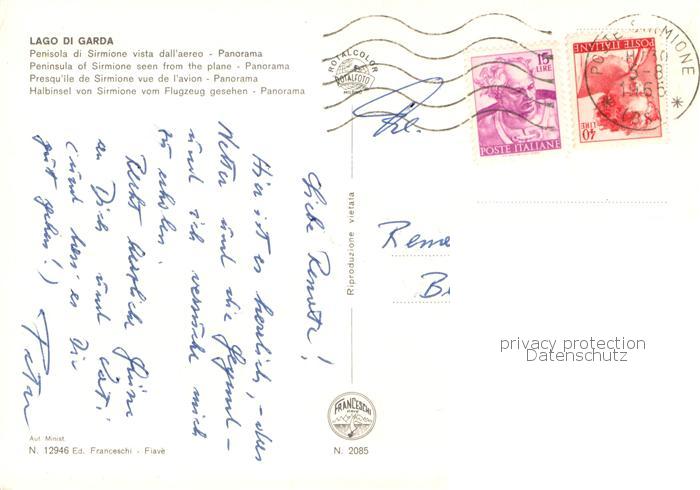 LAGO DI GARDA
Penisola di Sirmione vista dall'aereo - Panorama
Peninsula of Sirmione seen from the plane - Panorama
Presqu'ile de Sirmione vue de l'avion - Panorama
Halbinsel von Sirmione vom Flugzeug gesehen - Panorama
ROTALCOLOR
ROTALFOTO
MILANO
15 LIRE
POSTE ITALIANE
POSTE ITALIANE
40 LIRE
POSTE SIRMIONE
Liebe Renate!
Hier ist es herrlich, - das
Wetter und die Gegend -
und ich versuche mich
zu erholen.
Recht herzliche Grüße
an Dich und
(und lass es Dir
gut gehen!)
Peter
Riproduzione vietata
Reme
privacy protection
Datenschutz
FRANCESCHI
FIAVÈ
Aut. Minist.
N. 12946 Ed. Franceschi - Fiavè
N. 2085